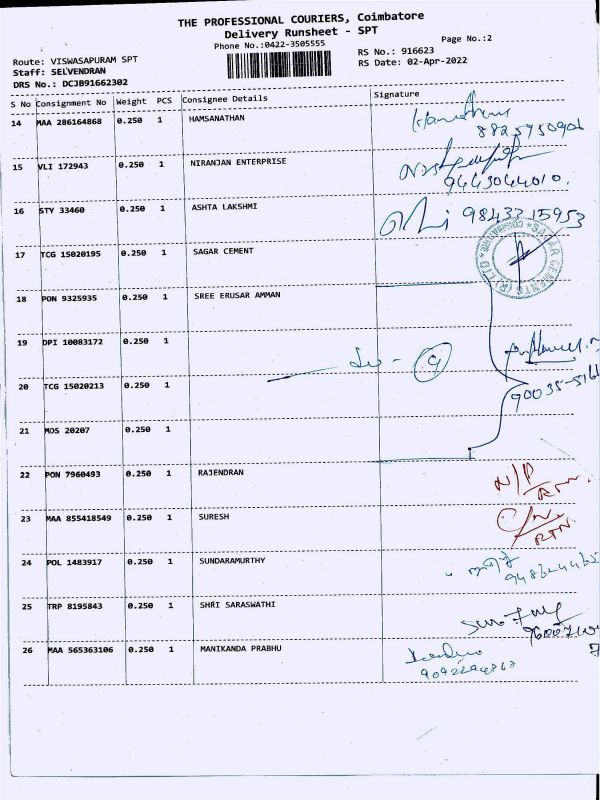 THE PROFESSIONAL COURIERS, Coimbatore
Delivery Runsheet - SPT
Phone No.:0422-3505555
Page No.:2
Route: VISWASAPURAM SPT
RS No.: 916623
Staff: SELVENDRAN
RS Date: 02-Apr-2022
DRS No.: DCJB91662302
S No Consignment No Weight PCS Consignee Details Signature
14 MAA 286164868 0.250 1 HAMSANATHAN
15 VLI 172943 0.250 1 NIRANJAN ENTERPRISE
9443044010.
16 STY 33460 0.250 1 ASHTA LAKSHMI
9843315953
17 TCG 15020195 0.250 1 SAGAR CEMENT
18 PON 9325935 0.250 1 SREE ERUSAR AMMAN
19 DPI 10083172 0.250 1
20 TCG 15020213 0.250 1
21 MDS 20207 0.250 1
22 PON 7960493 0.250 1 RAJENDRAN
N/P
RTN.
23 MAA 855418549 0.250 1 SURESH
RTN.
24 POL 1483917 0.250 1 SUNDARAMURTHY
25 TRP 8195843 0.250 1 SHRI SARASWATHI
26 MAA 565363106 0.250 1 MANIKANDA PRABHU